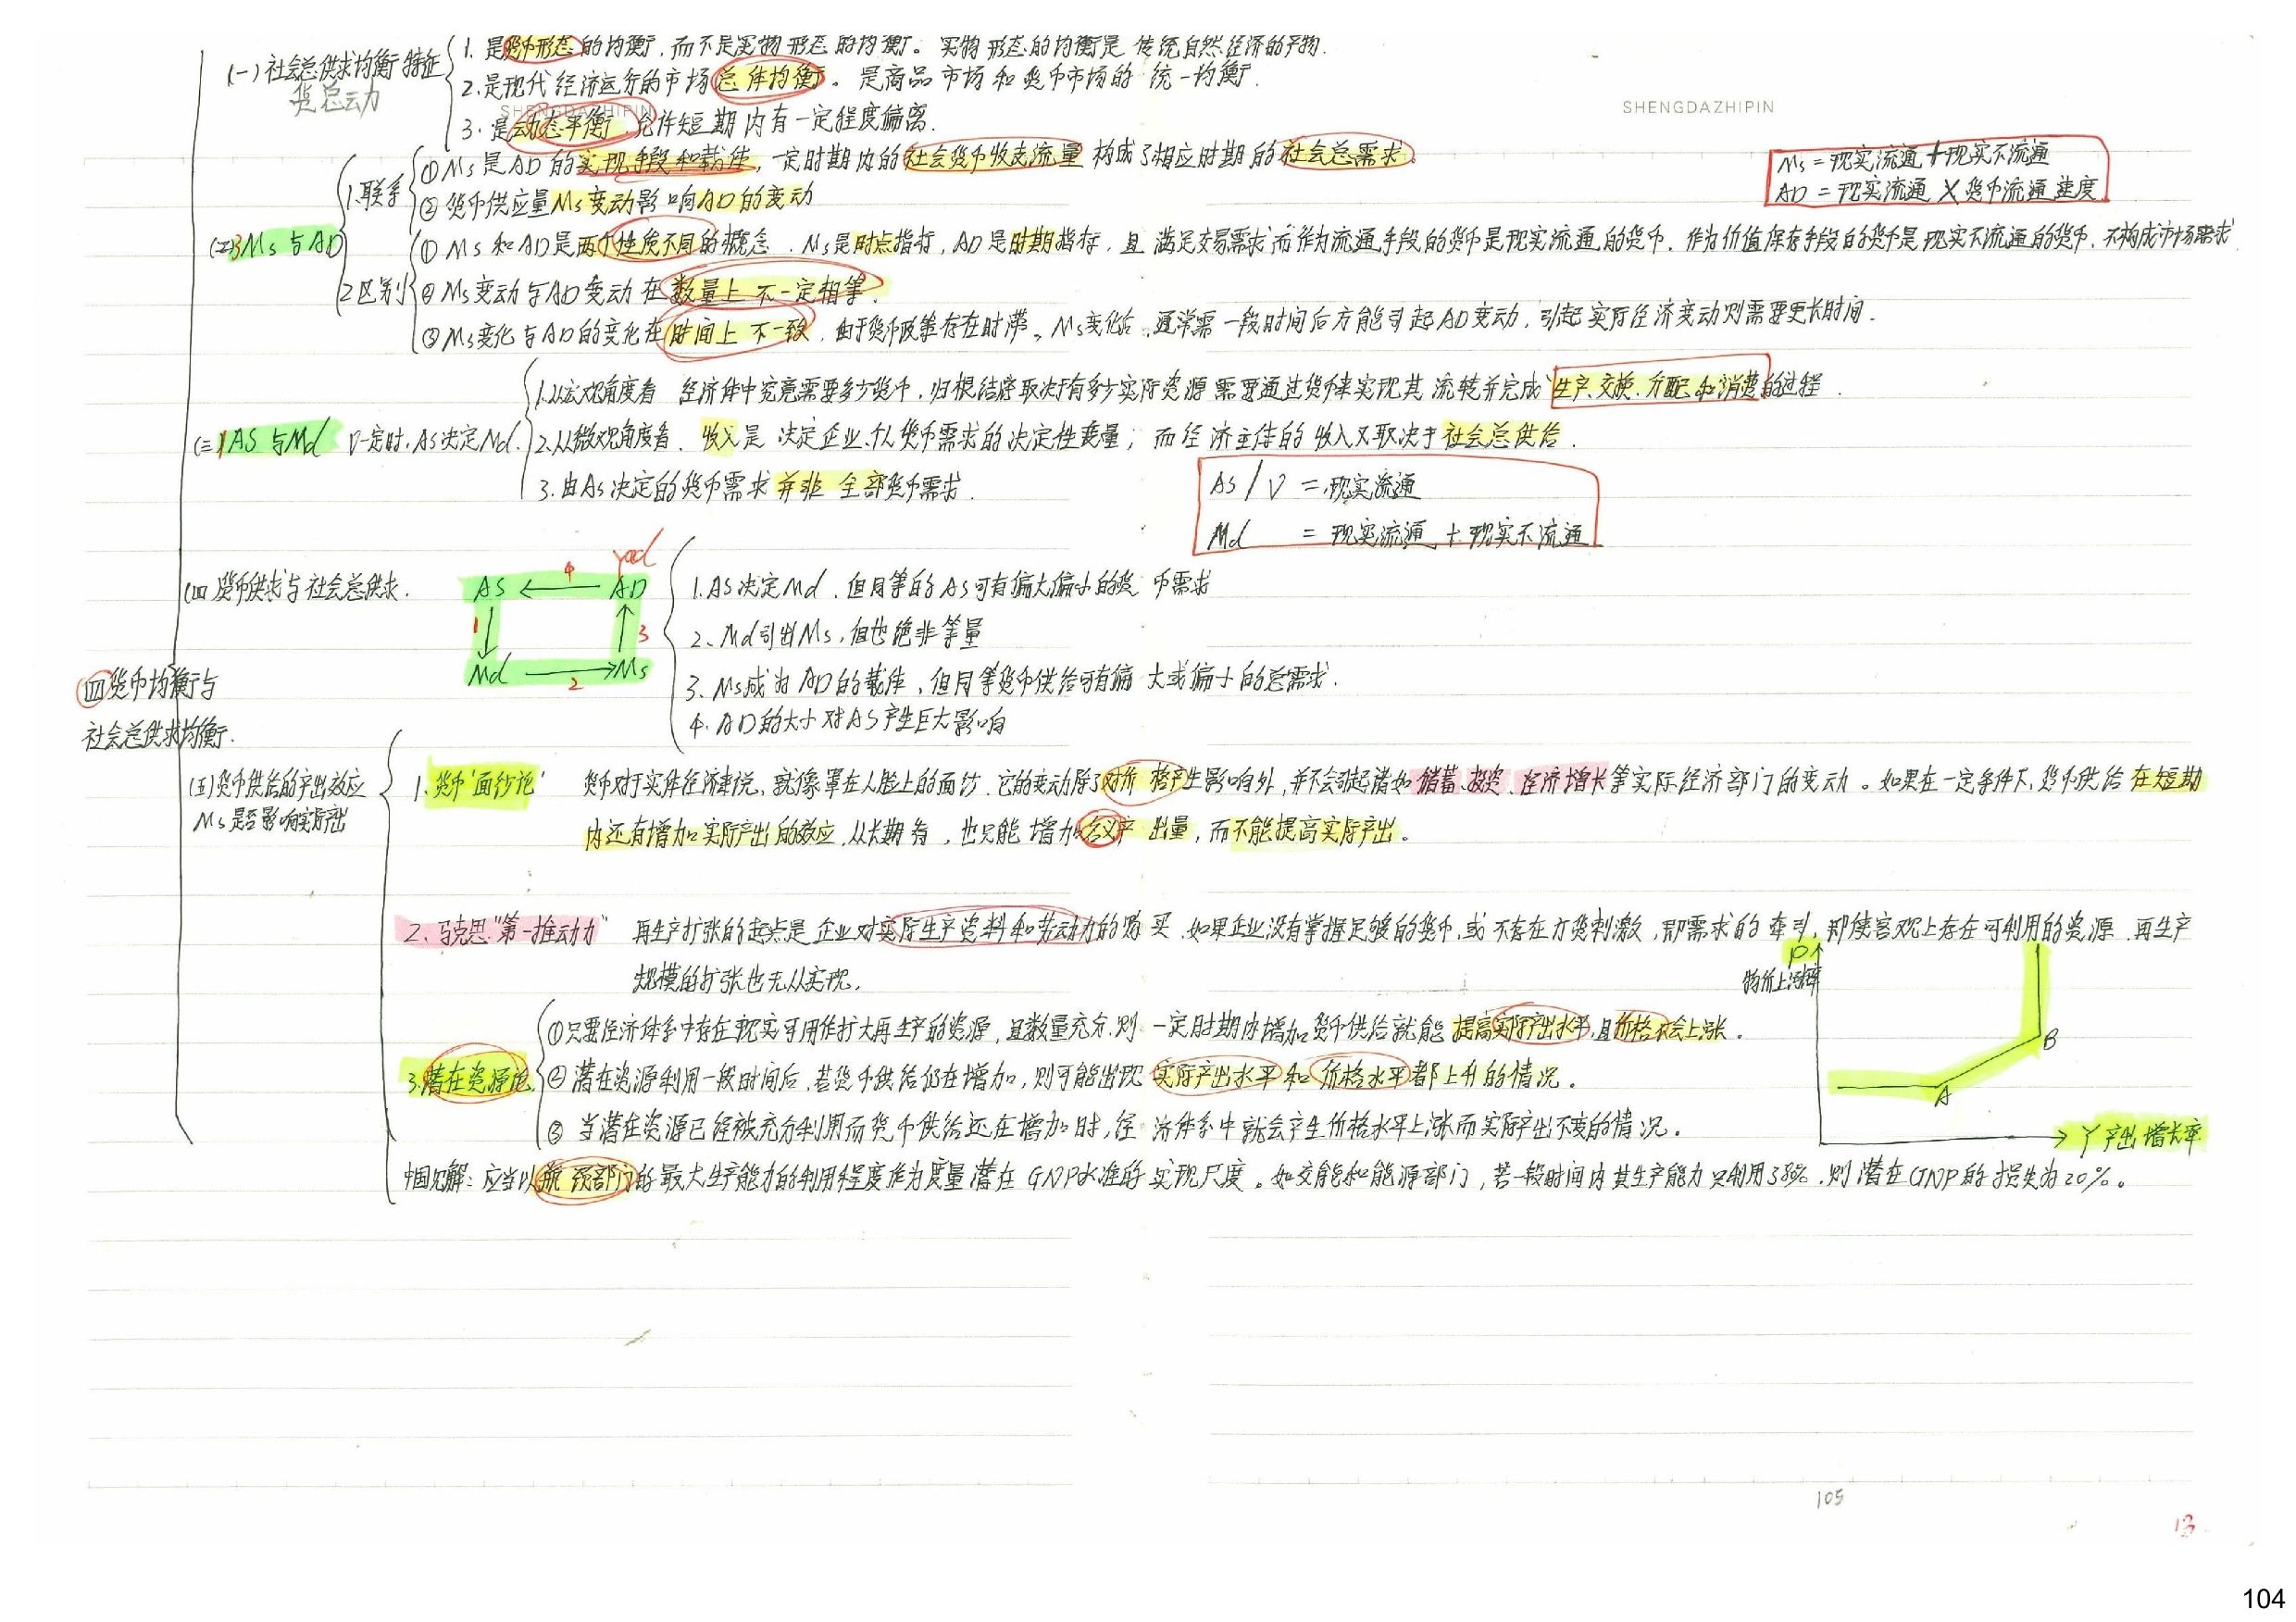 (一)社会总供求均衡特征
货总动力
1. 是货币形态的均衡,而不是实物形态的均衡。实物形态的均衡是传统自然经济的产物.
2.是现代经济运行的市场总体均衡。是商品市场和货币市场的统一均衡.
SHENGDAZHIPIN
SHENGDAZHIPIN
3.是动态平衡,允许短期内有一定程度偏离.
(二)3Ms与AD
1.联系
①Ms是AD的实现手段和载体,一定时期内的社会货币收支流量构成了相应时期的社会总需求.
②货币供应量Ms变动影响AD的变动
Ms=现实流通+现实不流通
AD=现实流通X货币流通速度
2区别
①Ms和AD是两个性质不同的概念.Ms是时点指标,AD是时期指标,且满足交易需求而作为流通手段的货币是现实流通的货币.作为价值保存手段的货币是现实不流通的货币.不构成市场需求
②Ms变动与AD变动在数量上不一定相等.
③Ms变化与AD的变化在时间上不一致.由于货币政策存在时滞。Ms变化后,通常需一段时间后方能引起AD变动,引起实际经济变动则需要更长时间.
(三)1AS与Md V一定时.AS决定Md.
1.从宏观角度看 经济体中究竟需要多少货币,归根结底取决于有多少实际资源需要通过货币来实现其流转并完成生产.交换.分配和消费的过程.
2.从微观角度看.收入是决定企业.个人货币需求的决定性变量;而经济主体的收入又取决于社会总供给.
3.由AS决定的货币需求并非全部货币需求.
AS/V=现实流通
Md =现实流通+现实不流通
(四)货币供求与社会总供求.
yad
AS 4 AD
1 3
Md 2 Ms
1.AS决定Md.但同等的AS可有偏大偏小的货币需求
2、Md引出Ms,但也绝非等量
3.Ms成为AD的载体,但同等货币供给可有偏大或偏小的总需求.
4.AD的大小对AS产生巨大影响
(四)货币均衡与
社会总供求均衡.
(五)货币供给的产出效应
Ms是否影响实际产出
1.货币'面纱论' 货币对于实体经济来说,就像罩在人脸上的面纱.它的变动除了对价格产生影响外,并不会引起诸如储蓄、投资、经济增长等实际经济部门的变动。如果在一定条件下,货币供给在短期
内还有增加实际产出的效应.从长期看,也只能增加名义产出量,而不能提高实际产出。
2.马克思"第一推动力" 再生产扩张的起点是企业对实际生产资料和劳动力的购买.如果企业没有掌握足够的货币,或不存在力货刺激,即需求的牵引,即使客观上存在可利用的资源.再生产
规模的扩张也无从实现.
3.潜在资源论
①只要经济体系中存在现实可用作扩大再生产的资源,且数量充分.则一定时期内增加货币供给就能提高实际产出水平,且价格不会上涨.
②潜在资源利用一段时间后.若货币供给仍在增加,则可能出现实际产出水平和价格水平都上升的情况。
③当潜在资源已经被充分利用而货币供给还在增加时,经济体系中就会产生价格水平上涨而实际产出不变的情况。
P
物价上涨率
A
B
Y产出增长率
中国见解:应当以瓶颈部门的最大生产能力的利用程度作为度量潜在GNP水准的实现尺度。如交能和能源部门,若一段时间内其生产能力只利用380%.则潜在GNP的损失为20%。
105
13
104